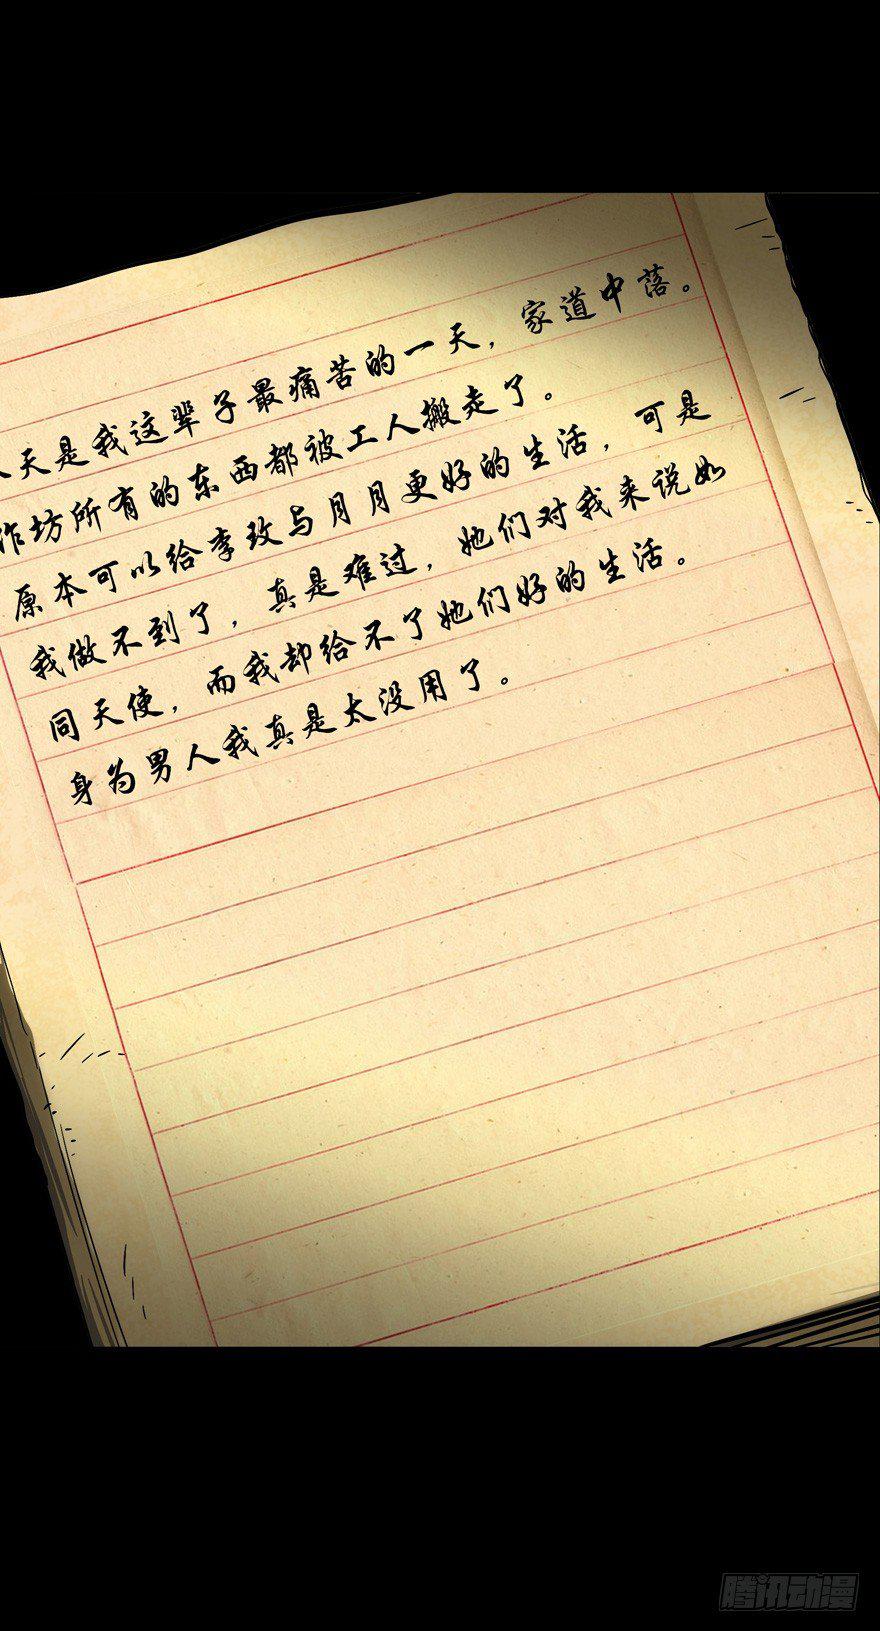 天是我这辈子最痛苦的一天，家道中落。
作坊所有的东西都被工人搬走了。
原本可以给李玫与月月更好的生活，可是
我做不到了，真是难过，她们对我来说如
同天使，而我却给不了她们好的生活。
身为男人我真是太没用了。
腾讯动漫